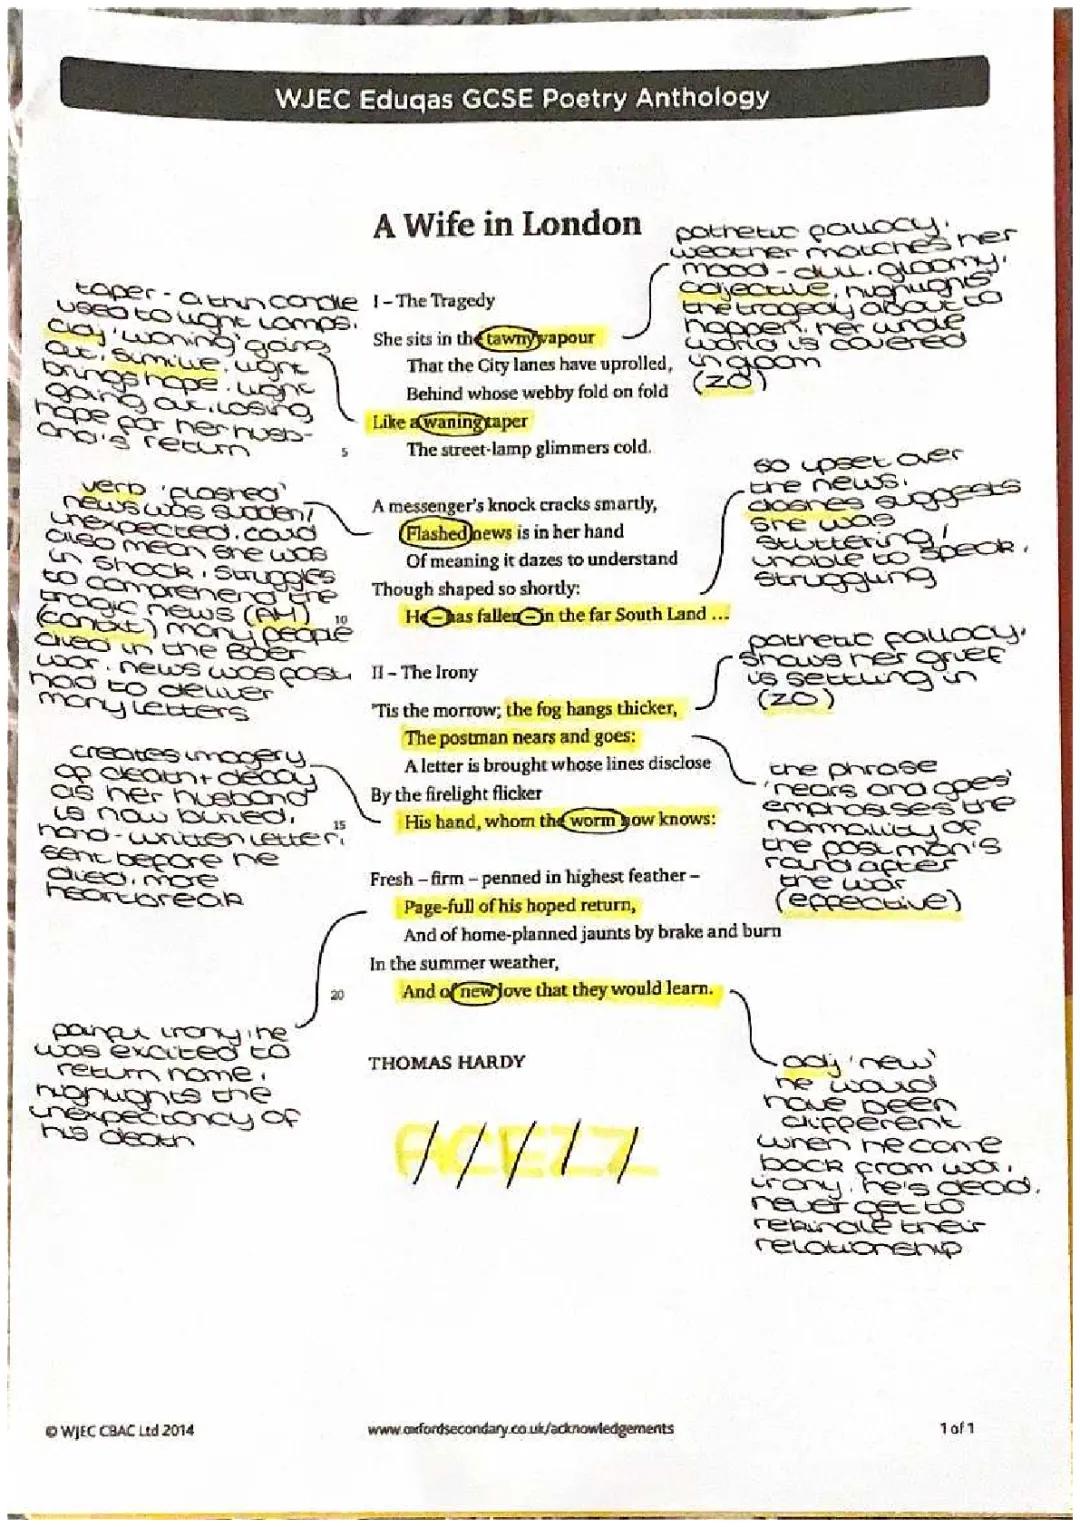 WJEC Eduqas GCSE Poetry Anthology
A Wife in London
pathetic fallacy.
weather matches her
mood - dull. gloomy.
adjective, highlights
the tragedy about to
happen. her whole
world is covered
in gloom
(ZO)
taper - a thin candle
used to light lamps.
adj 'waning' going
out. simile. light
brings hope. light
going out, losing
hope for her husb-
and's return
I – The Tragedy
She sits in the tawny vapour
That the City lanes have uprolled,
Behind whose webby fold on fold
Like a waning taper
5 The street-lamp glimmers cold.
so upset over
the news.
dashes suggests
she was
stuttering /
unable to speak.
struggling
verb 'flashed'
news was sudden/
unexpected. could
also mean she was
in shock. struggles
to comprehend the
tragic news (AH)
(context) many people
died in the Boer
war. news was post
had to deliver
many letters
A messenger's knock cracks smartly,
Flashed news is in her hand
Of meaning it dazes to understand
Though shaped so shortly:
10 He – has fallen – in the far South Land ...
pathetic fallacy.
shows her grief
is settling in
(ZO)
II – The Irony
'Tis the morrow; the fog hangs thicker,
The postman nears and goes:
A letter is brought whose lines disclose
By the firelight flicker
15 His hand, whom the worm now knows:
creates imagery
of death + decay
as her husband
is now buried.
hand-written letter.
sent before he
died. more
heartbreak
the phrase
'nears and goes'
emphasises the
normality of
the postman's
round after
the war
(effective)
Fresh – firm – penned in highest feather –
Page-full of his hoped return,
And of home-planned jaunts by brake and burn
In the summer weather,
20 And of new love that they would learn.
painful irony. he
was excited to
return home.
highlights the
unexpectancy of
his death
THOMAS HARDY
adj 'new'
he would
have been
different
when he came
back from war.
irony. he's dead.
never get to
rekindle their
relationship
ACEZZ
© WJEC CBAC Ltd 2014
www.oxfordsecondary.co.uk/acknowledgements
1 of 1